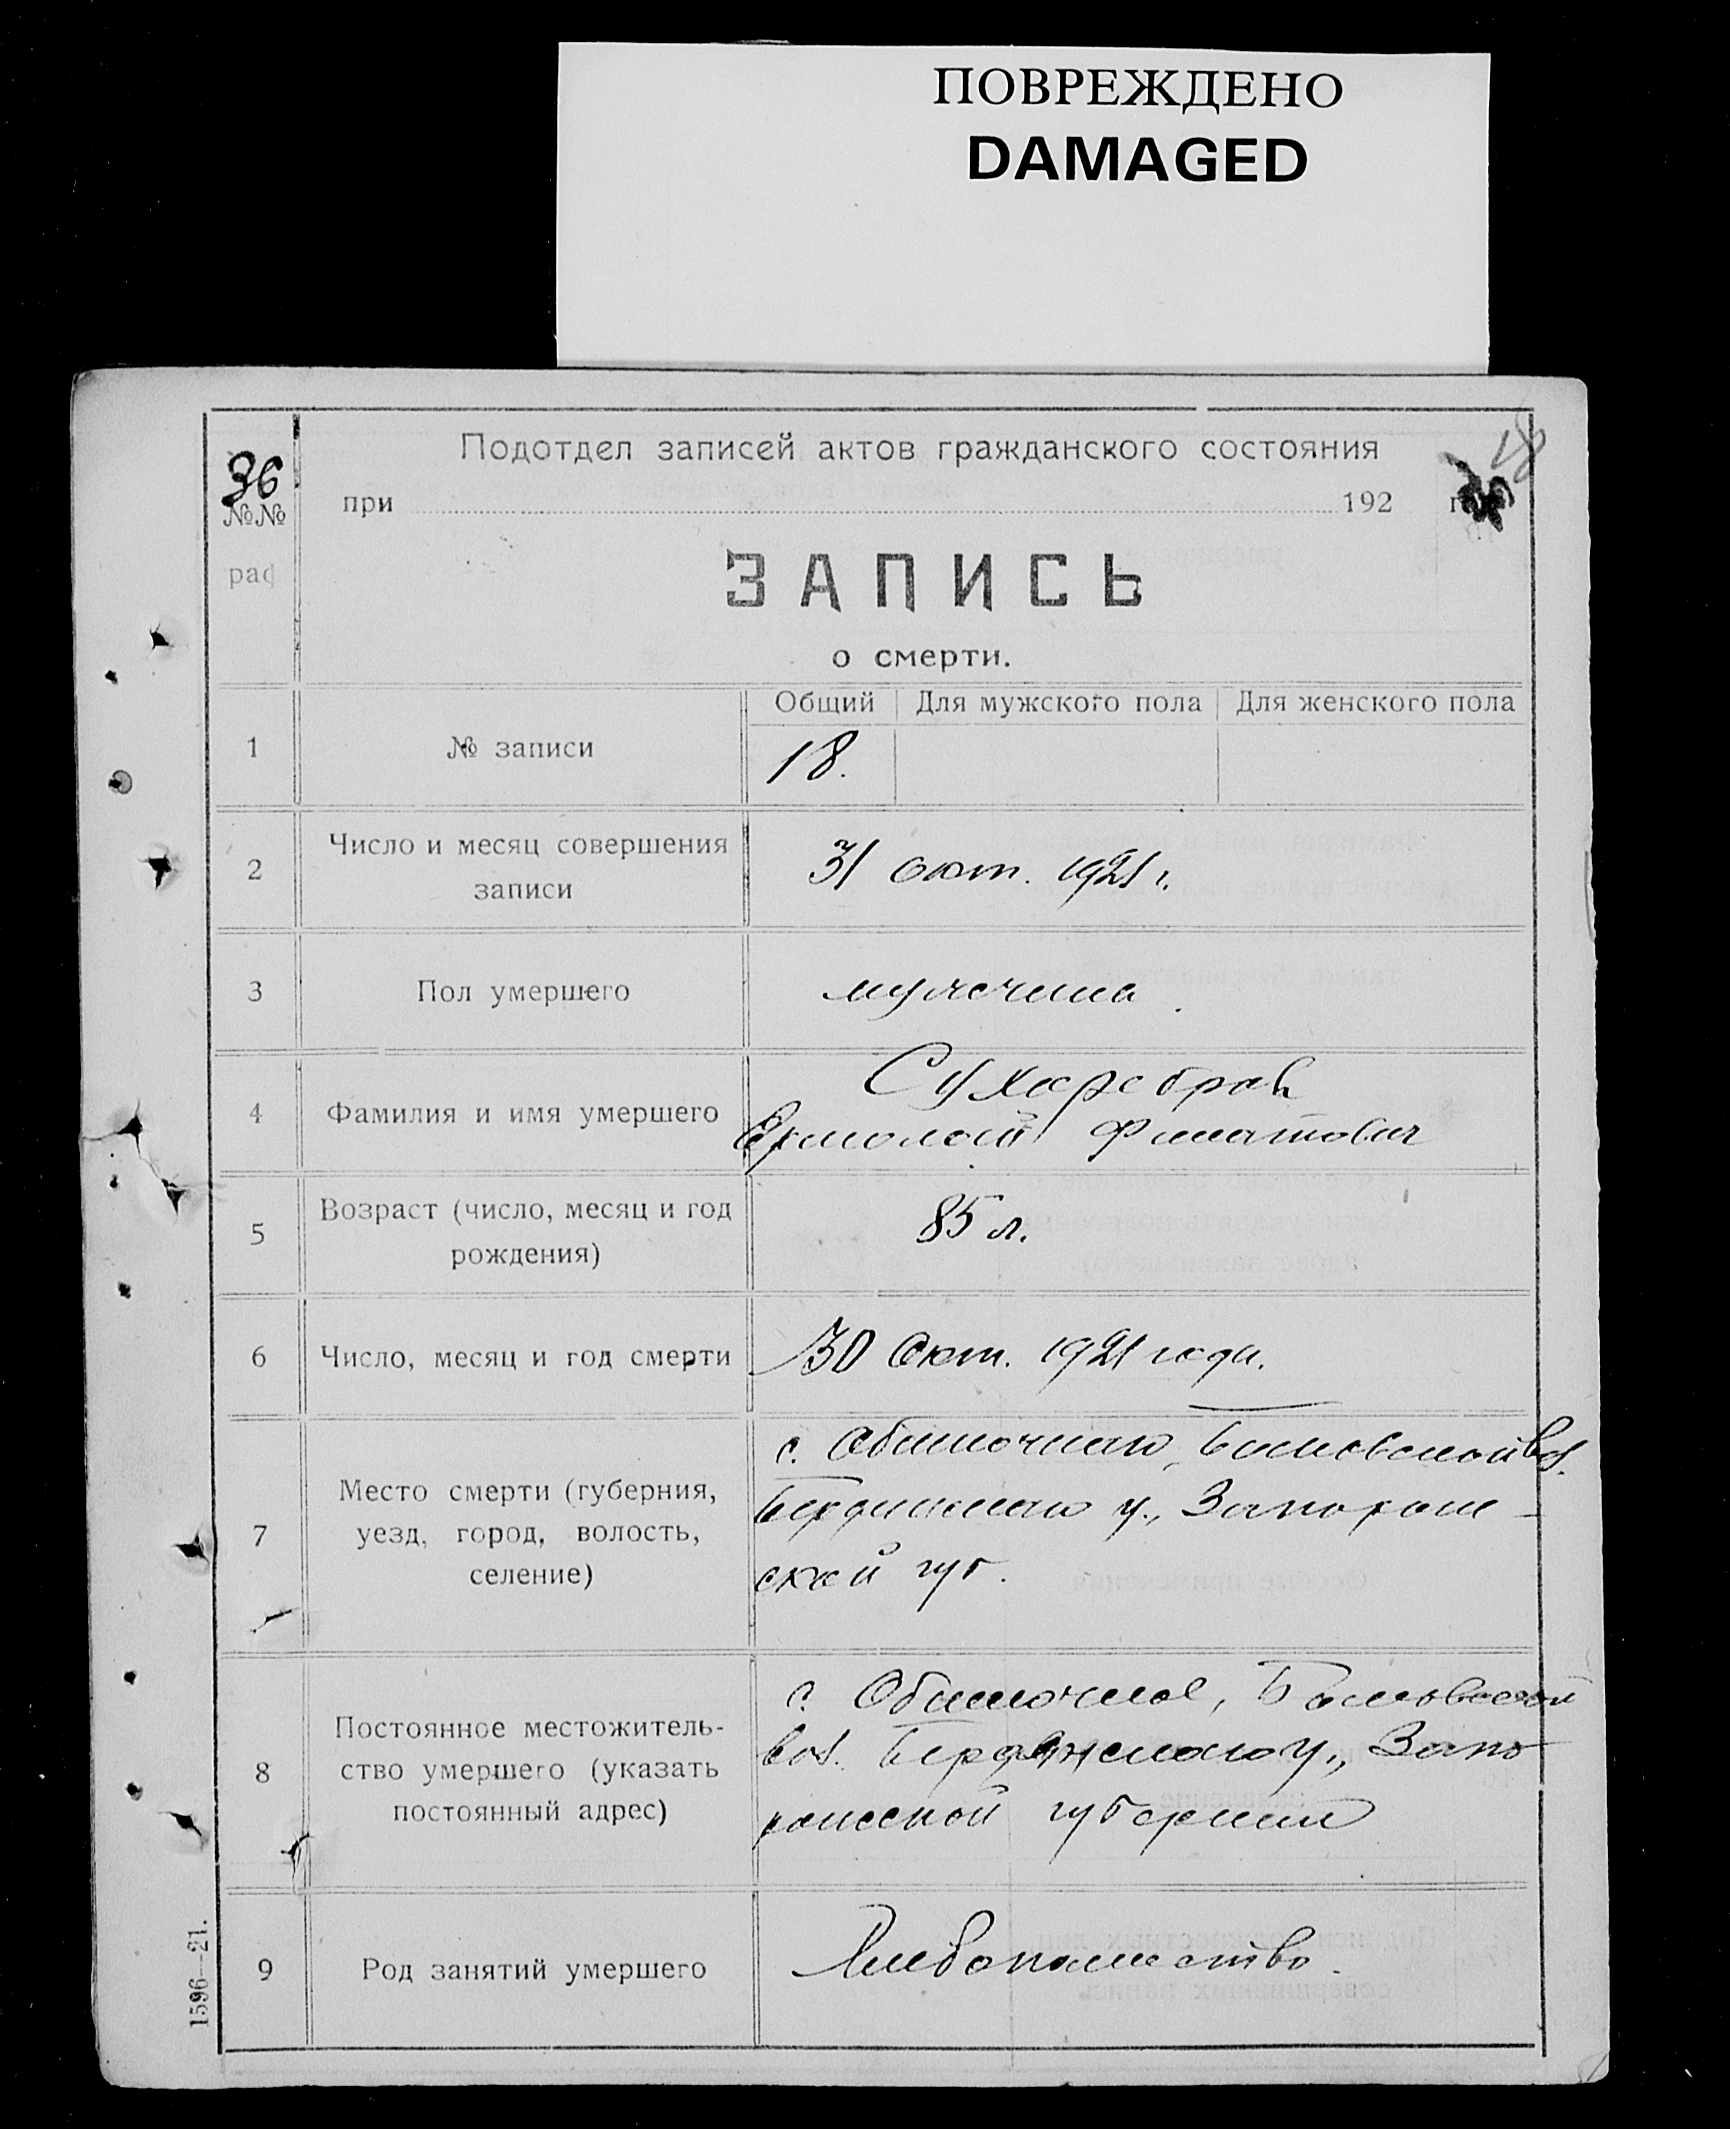 ПОВРЕЖДЕНО
DAMAGED
36
18
Подотдел записей актов гражданского состояния
№№
при 192 г
раф
ЗАПИСЬ
о смерти.
Общий Для мужского пола Для женского пола
1 № записи 18.
2 Число и месяц совершения
записи
31 окт. 1921 г.
3 Пол умершего мужчина.
4 Фамилия и имя умершего
Ермолай Филатович
5 Возраст (число, месяц и год
рождения)
85 л.
6 Число, месяц и год смерти 30 Окт. 1921 года.
7 Место смерти (губерния,
уезд, город, волость,
селение)
с. Обиточная,
Бердянскаго у., Запорож-
ской губ.
8 Постоянное местожитель-
ство умершего (указать
постоянный адрес)
с. Обиточное,
вол. Бердянскаго у., Запо
рожской губернии
9 Род занятий умершего Хлебопашество.
1596—21.